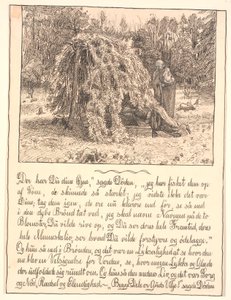 "Der har Du dine Øjne," sagde Døden, "jeg har fisket dem op
af Søen, de skinnede saa stærkt; jeg vidste ikke det var
Dine; tag dem igen, de ere nu klarere end før, se saa ned
i den dybe Brønd tæt ved, jeg skal nævne Navnene paa de to
Blomster, Du vilde rive op, og Du ser deres hele Fremtid, deres
hele Menneskeliv, ser hvad Du vilde forstyrre og ødelægge.
Og hun saa ned i Brønden; og det var en Lyksalighed at se hvor den
ene blev en Velsignelse for Verden, se, hvor megen Lykke og Glæde
der udfoldede sig rundt om. Og hun saa den andens Liv, og det var Sorg
og Nød, Rædsel og Elendighed. — Begge Dele er Guds Villie!" sagde Døden